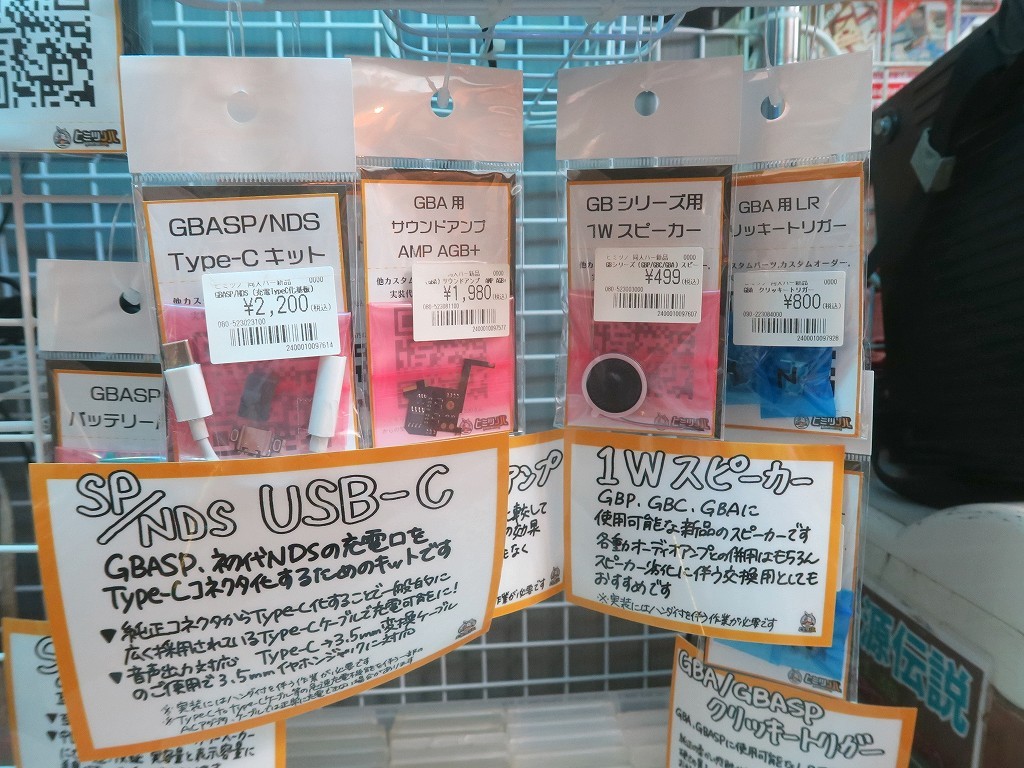 ヒミツノバ
GBASP/NDS
Type-C キット
他カス
ヒミツノ 同人バー新品 0000
GBASP/NDS (充電TypeC化基板)
¥2,200(税込)
080-523023100
2400010097614
GBA 用
サウンドアンプ
AMP AGB+
他カスタム
実装代
¥1,980(税込)
080-523081100
2400010097577
GB シリーズ用
1W スピーカー
ヒミツノ 同人バー新品 0000
GBシリーズ (GBP/GBC/GBA) スピー
¥499(税込)
080-523003000
2400010097607
GBA 用 LR
リッキートリガー
スタムパーツ,カスタムオーダー,
ヒミツノ 同人バー新品 0000
GBA クリッキートリガ
¥800(税込)
080-223084000
2400010097928
GBASP
バッテリー
SP/NDS USB-C
GBASP、初代NDSの充電口を
Type-Cコネクタ化するためのキットです
▼純正コネクタからType-C化することで一般的に
広く採用されているType-Cケーブルで充電可能に!
▼音声出力対応 Type-C→3.5mm変換ケーブル
のご使用で3.5mmイヤホンジャックに対応
※実装にはハンダ付を伴う作業が必要です
アンプ
の効果
業が必要です
1Wスピーカー
GBP、GBC、GBAに
使用可能な新品のスピーカーです
各動オーディオアンプとの併用はもちろん
スピーカー劣化に伴う交換用としても
おすすめです
※実装にはハンダ付を伴う作業が必要です
GBA/GBASP
クリッキートリガー
GBA、GBASPに使用可能な
実容量と表示容量に
源伝説